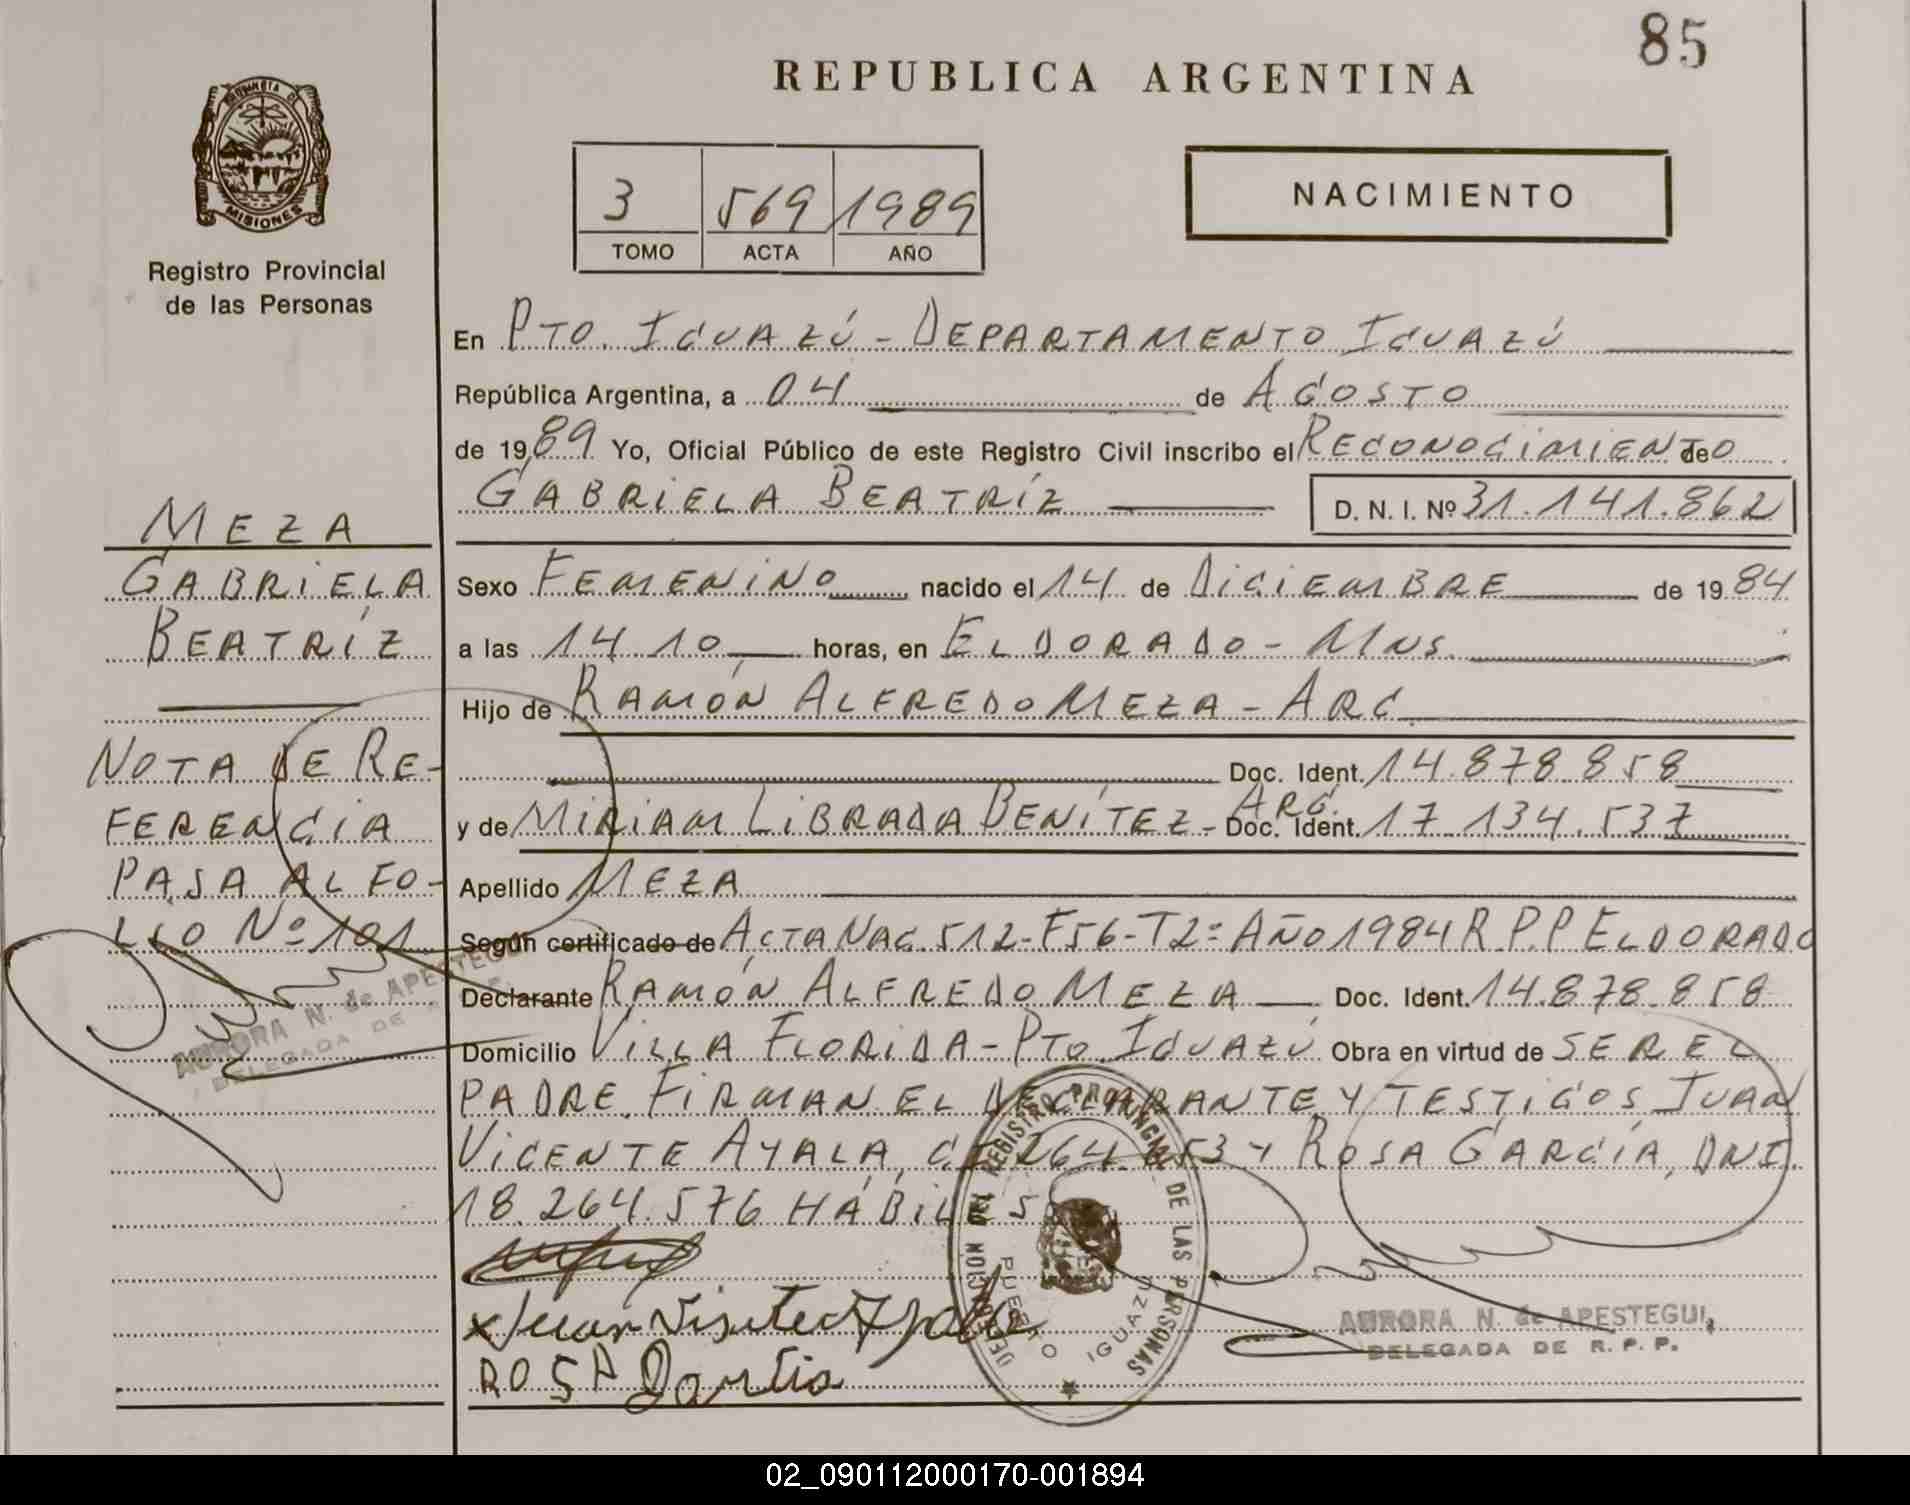 85
REPUBLICA ARGENTINA
PROVINCIA DE
MISIONES
Registro Provincial
de las Personas
3 569 1989
TOMO ACTA AÑO
NACIMIENTO
En PTO. IGUAZÚ - DEPARTAMENTO IGUAZÚ
República Argentina, a 04 de AGOSTO
de 1989 Yo, Oficial Público de este Registro Civil inscribo el RECONOCIMIENTO de
GABRIELA BEATRÍZ D. N. I. Nº 31.141.862
MEZA
GABRIELA
BEATRÍZ
NOTA DE RE-
FERENCIA
PASA AL FO-
LIO Nº 101
AURORA N. de APESTEGUI
DELEGADA DE
Sexo FEMENINO nacido el 14 de DICIEMBRE de 1984
a las 14 10 horas, en ELDORADO - MNS.
Hijo de RAMÓN ALFREDO MEZA - ARG
Doc. Ident. 14.878.858
y de MIRIAM LIBRADA BENÍTEZ - ARG. Doc. Ident. 17.134.537
Apellido MEZA
Según certificado de ACTA NAC. 512-F56-T2º AÑO 1984 R.P.P ELDORADO
Declarante RAMÓN ALFREDO MEZA Doc. Ident. 14.878.858
Domicilio VILLA FLORIDA - PTO. IGUAZÚ Obra en virtud de SER EL
PADRE. FIRMAN EL DECLARANTE Y TESTIGOS JUAN
VICENTE AYALA, 264. 53 Y ROSA GARCÍA, DNI.
18.264.576 HÁBILES
DELEGACIÓN DEL REGISTRO PROVINCIAL DE LAS PERSONAS
PUERTO IGUAZÚ
ROSA
AURORA N. de APESTEGUI
DELEGADA DE R. P. P.
02_090112000170-001894